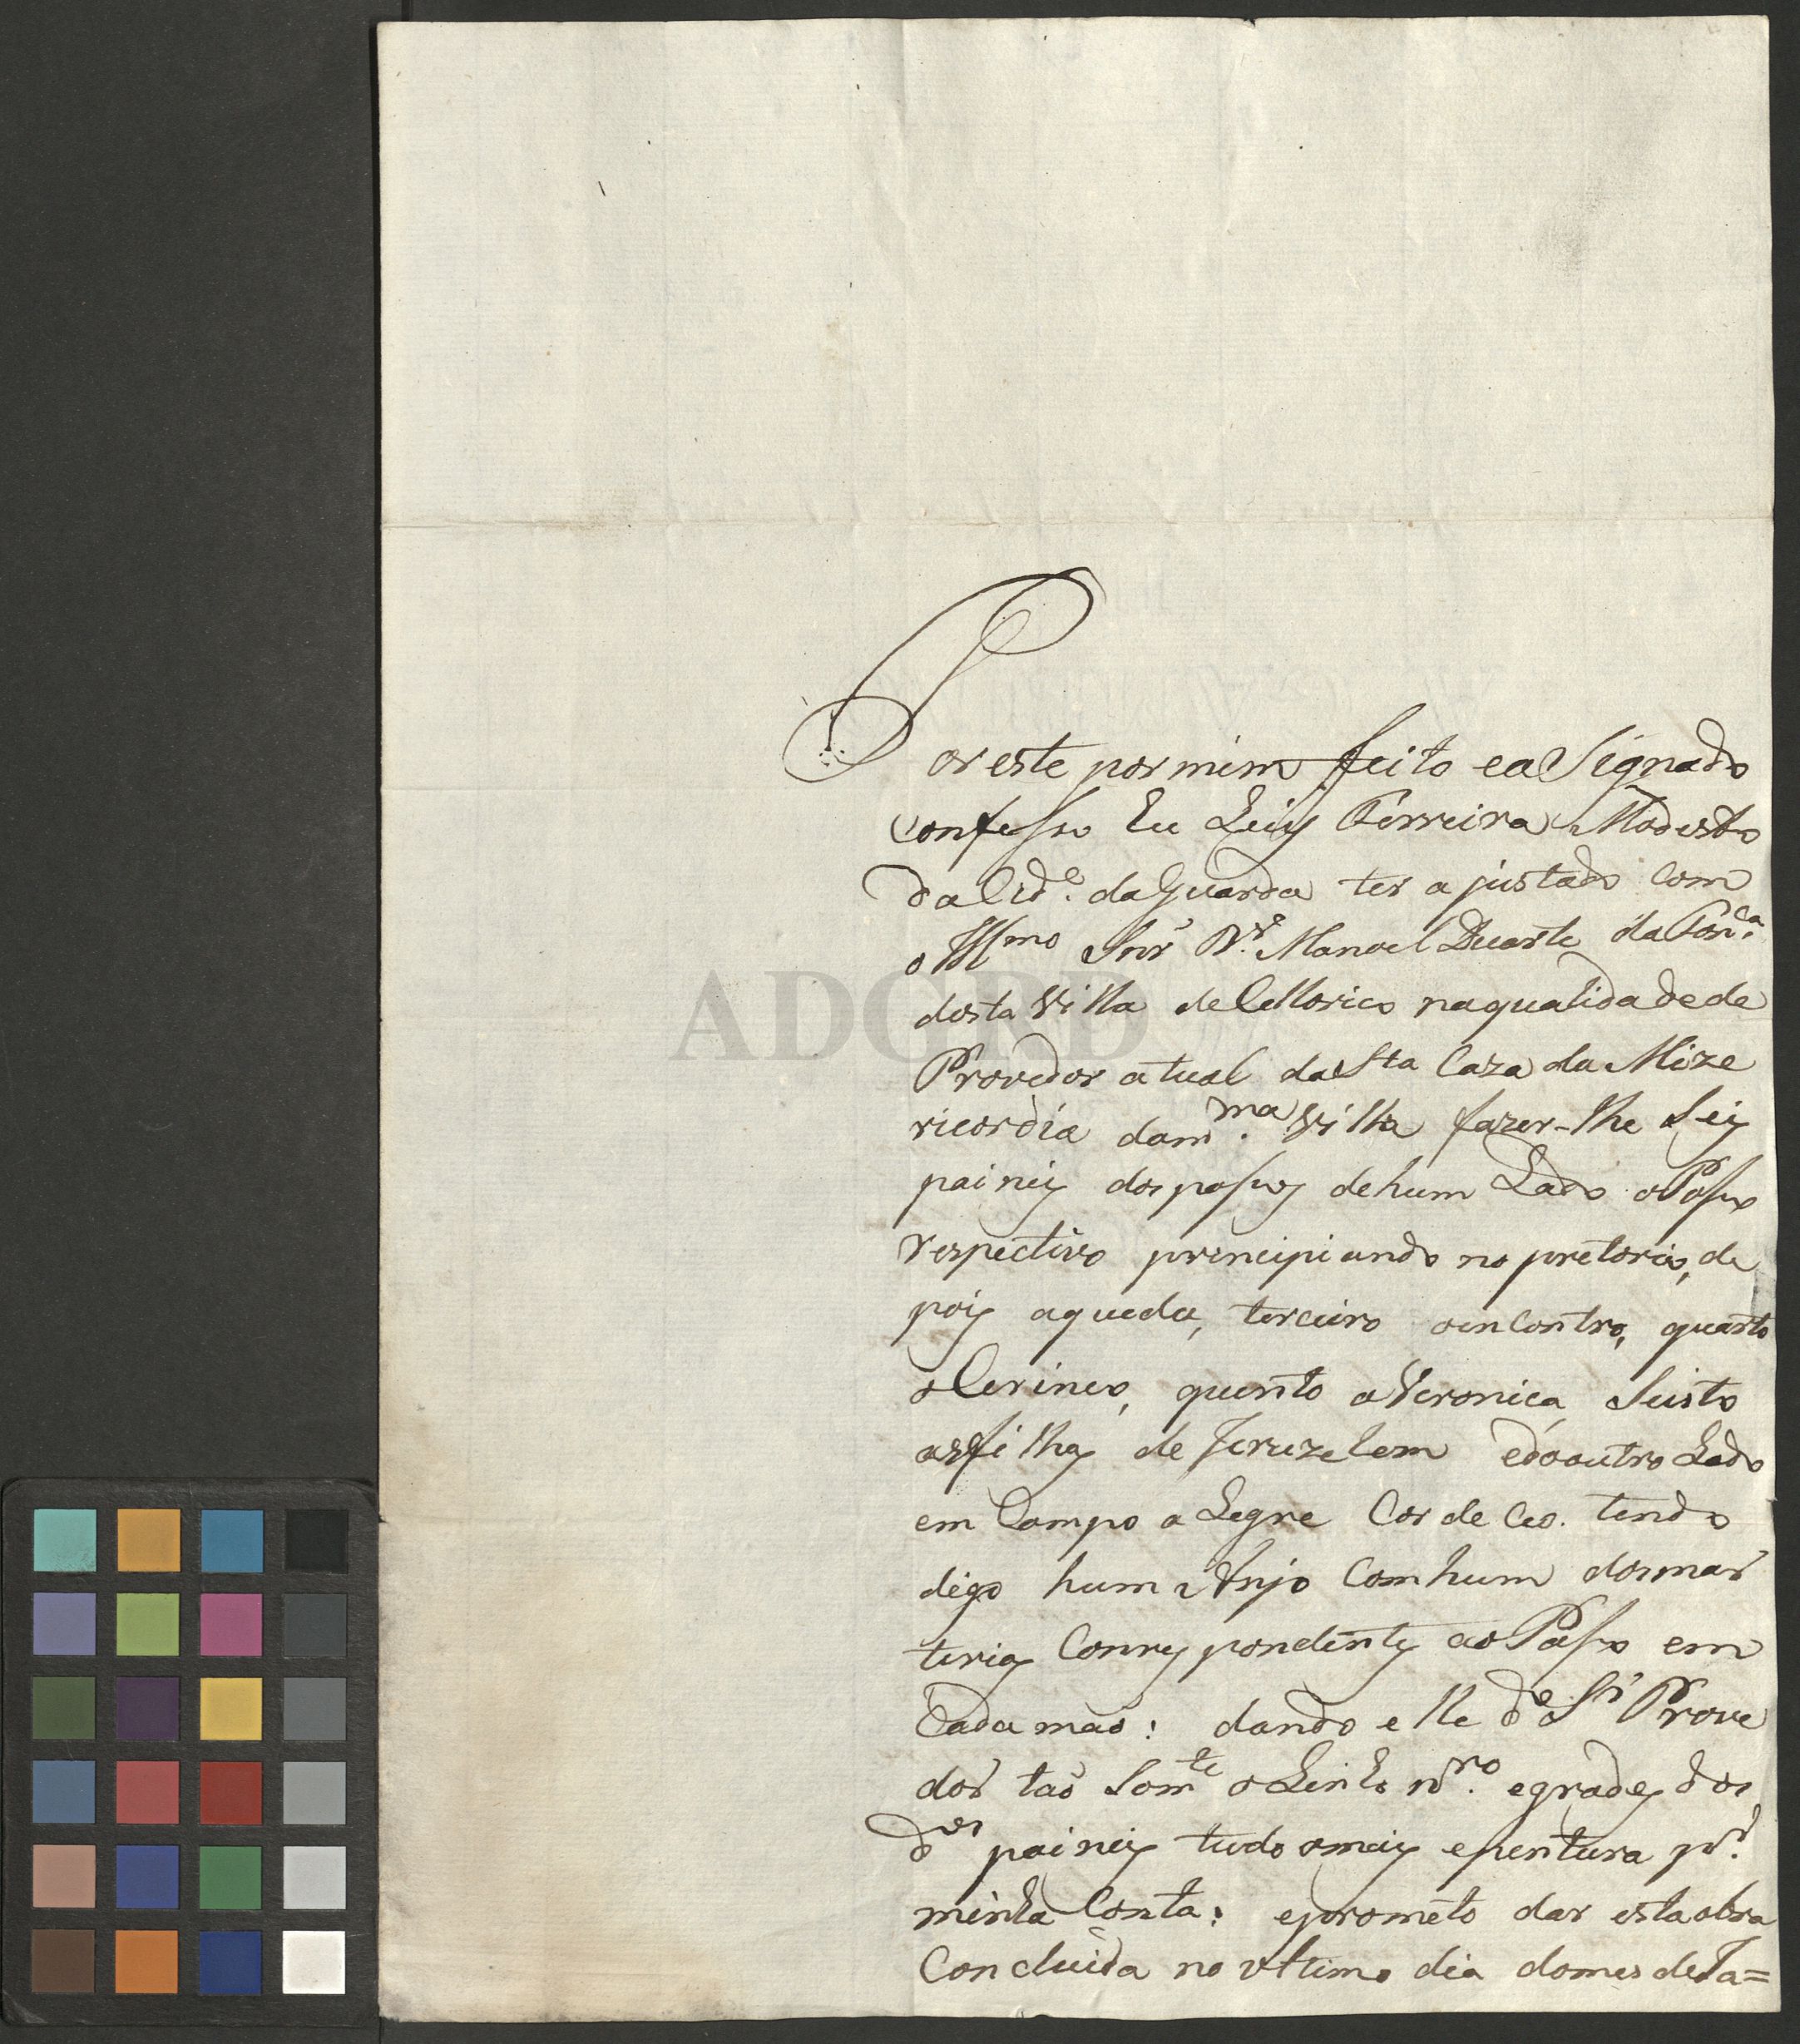 Por este por mim feito ea Signado
confesso Eu Luis Ferreira Modesto
da Cid.e da Guarda ter ajustado com
o Illmo Snr Manoel Duarte da Fon.ca
desta Villa de Cellorico na qualidade de
Provedor atual da Sta Caza da Mize
ricordia da m.ma Villa fazer-lhe Seis
paineis dos passos de hum Lado o Passo
respectivo principiando no pretorio, de
pois aqueda, terceiro oencontro, quarto
o Cerineo, quinto a Veronica, Seisto
asfilhas de Jeruzelem edooutro Lado
em Campo a Legre Cor de Ceo. tendo
digo hum Anjo Com hum dos mar
terios Conrespondentes ao Passo em
Cada mão: dando elle d.o Sr Prove
dor tão Som.te o Linho egrades dos
d.os paineis tudo omais epentura por
minha Conta: eprometo dar esta obra
Concluida no ultimo dia domes de Ja=
ADGRD